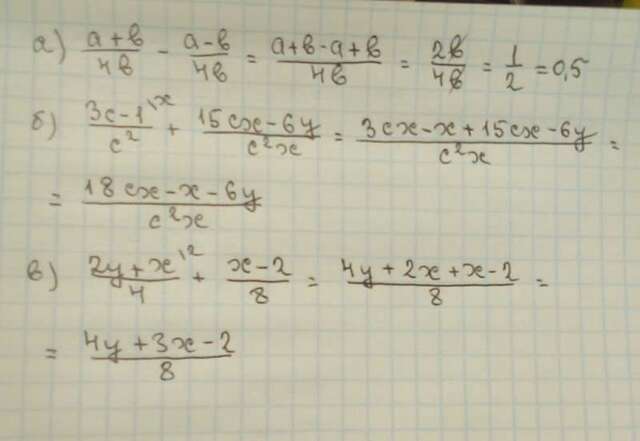 а) (a+b)/4b - (a-b)/4b = (a+b-a+b)/4b = 2b/4b = 1/2 = 0,5
б) (3c-1)\x/c² + (15cx-6y)/c²x = (3cx-x+15cx-6y)/c²x =
= (18cx-x-6y)/c²x
в) (2y+x)\2/4 + (x-2)/8 = (4y+2x+x-2)/8 =
= (4y+3x-2)/8